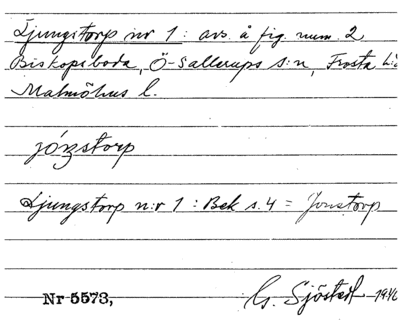 Ljungstorp n:r 1: avs. å fig. num. 2
Biskopsboda, Ö-Sallerups s:n, Frosta h:d
Malmöhus l.
jó̱ᶇstorp
Ljungstorp n:r 1 : Bek s. 4 = Jonstorp
Nr 5573, G. Sjöstedt 1940